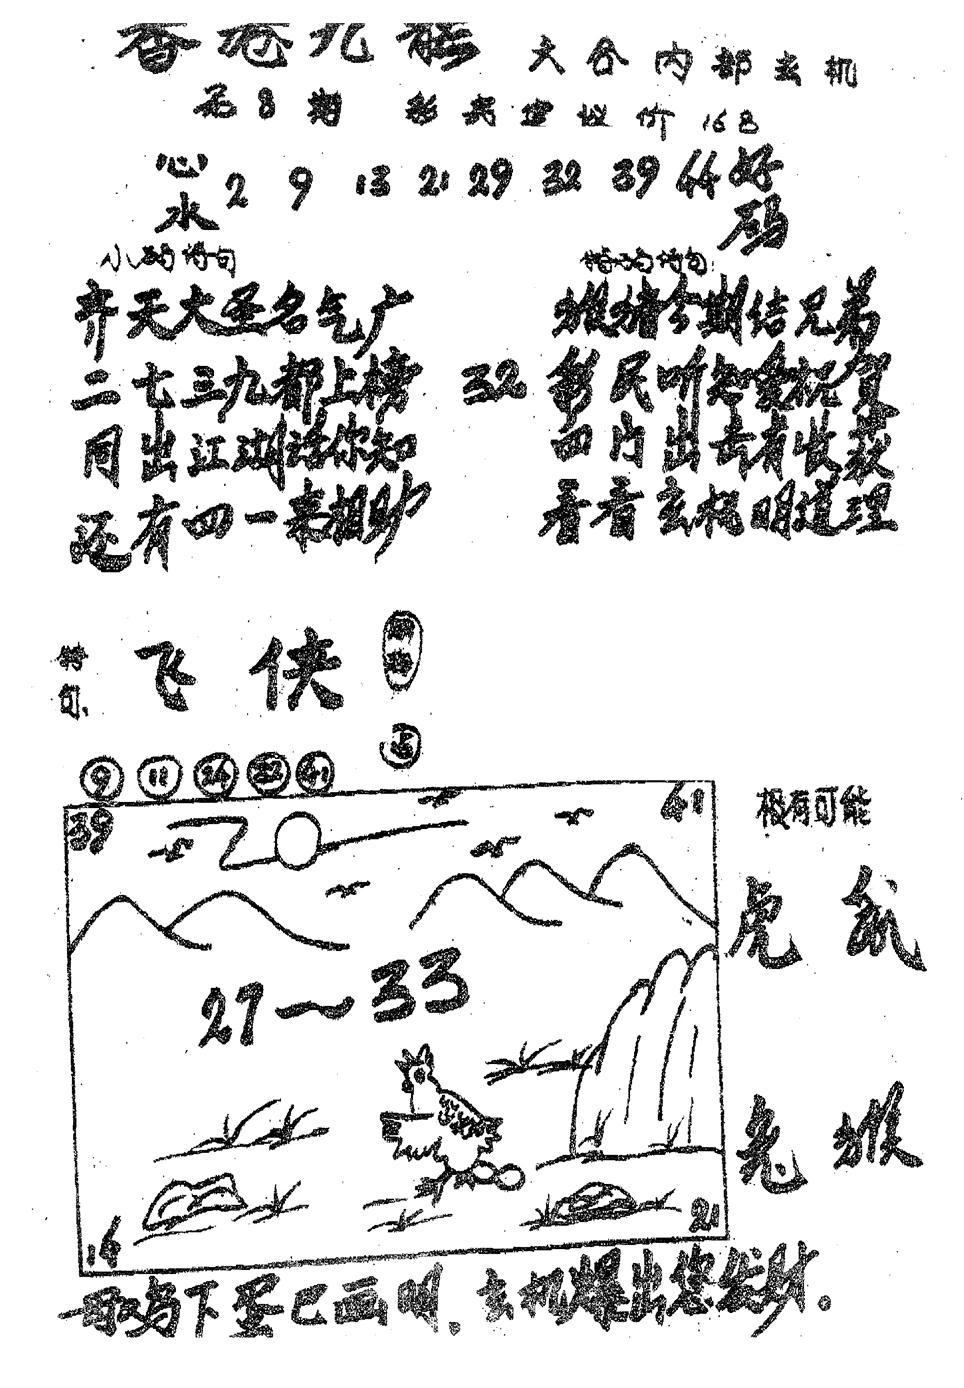 香港九龍 六合内部玄机
第8期 彩民建议价168
心水 2 9 13 21 29 32 39 44 好码
小码诗句
齐天大圣名气广
二七三九都上榜
同出江湖话你知
还有四一来相纱
32
特码诗句
猴猪今期结兄弟
彩民听知爱祝贺
四门出击有收获
看看玄机明道理
特句: 飞侠
9 11 24 32 41
39
41
27~33
16
21
极有可能
虎 鼠
兔 猴
一歌鸟下蛋已画明. 玄机爆出您发财。